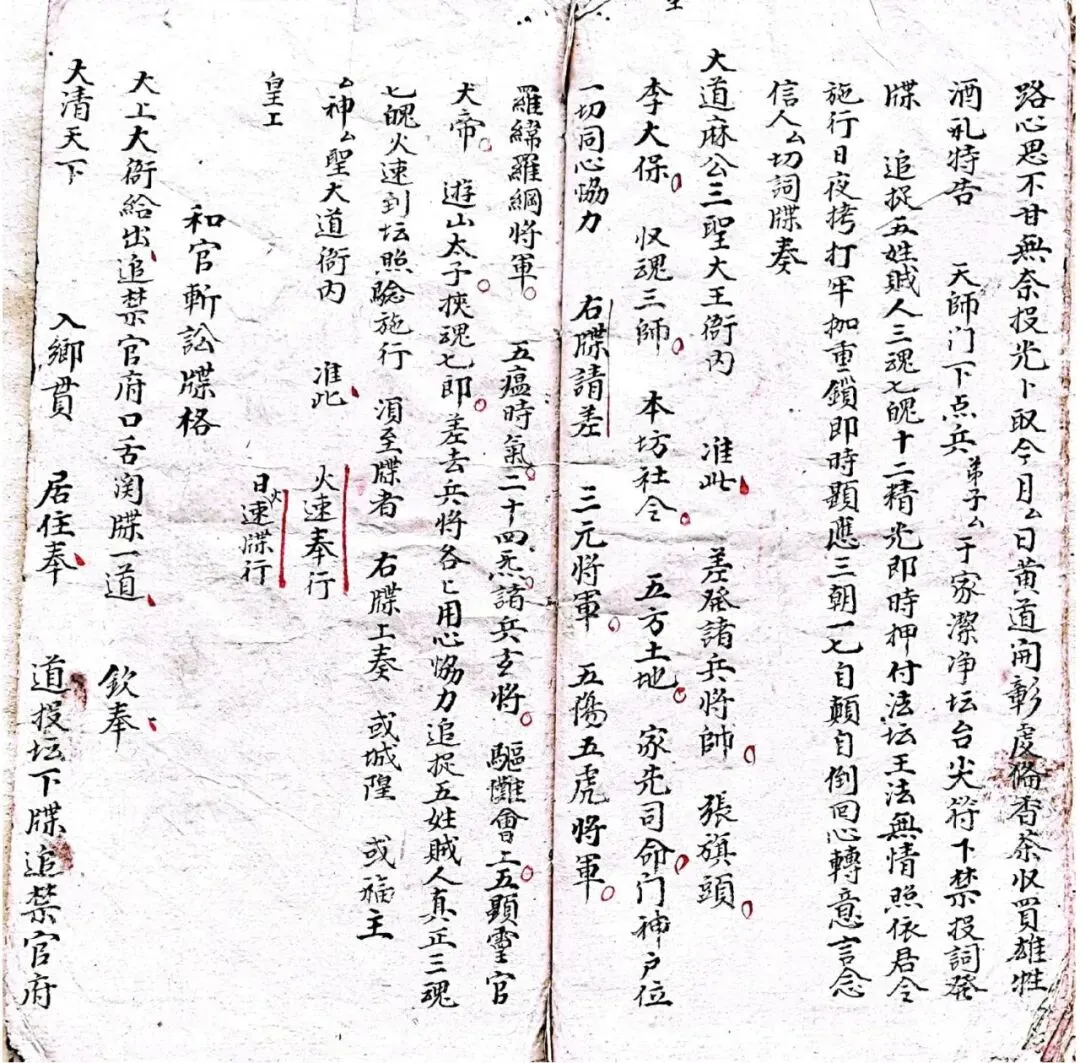 路心思不甘無奈投光卜取今月厶日黄道開彰虔俻香茶收買雄牲
酒礼特告 天師门下点兵弟子厶于家潔净坛台尖符下禁投詞發
牒 追捉五姓賊人三魂七魄十二精光即時押付法坛王法無情照依君令
施行日夜拷打牢枷重鎖即時顕應三朝一七自顛自倒回心轉意言念
信人厶切詞牒奏
大道麻公三聖大王衙内 准此 差發諸兵將帥 張旗頭
李大保 収魂三師 本坊社令 五方土地 家先司命门神户位
一切同心恊力 右牒請差 三元將軍 五傷五虎將軍
羅綿羅綱將軍 五瘟時氣二十四炁諸兵主將 驅儺會上五顕霊官
犬帝 遊山太子挾魂七郎差去兵將各匕用心恊力追捉五姓賊人真正三魂
七魄火速到坛照騐施行 湏至牒者 右牒上奏 或城隍 或福主
厶神厶聖大道衙内 准此 火速奉行
皇工 日火速牒行
和官斬訟牒格
大上大衙給出追禁官府口舌関牒一道 欽奉
大清天下 入鄉貫 居住奉 道投坛下牒追禁官府